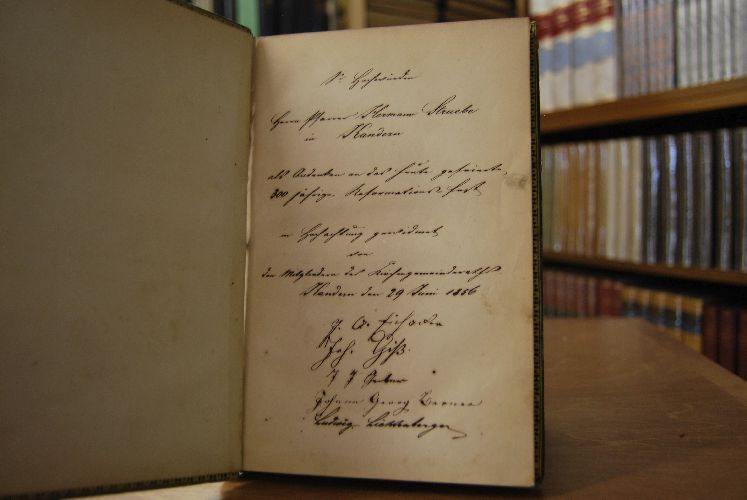 Sr Hochwürden
Herrn Pfarrer Hermann Struebe
in Kandern
als Andenken an das heute gefeierte,
300 jährige Reformations-Fest
in Hochachtung gewidmet
von
den Mitgliedern des Kirchengemeinderaths
Kandern den 29 Juni 1856
Joh. Giß.
J J
Johann Georg Berner
Ludwig Lichtenberger